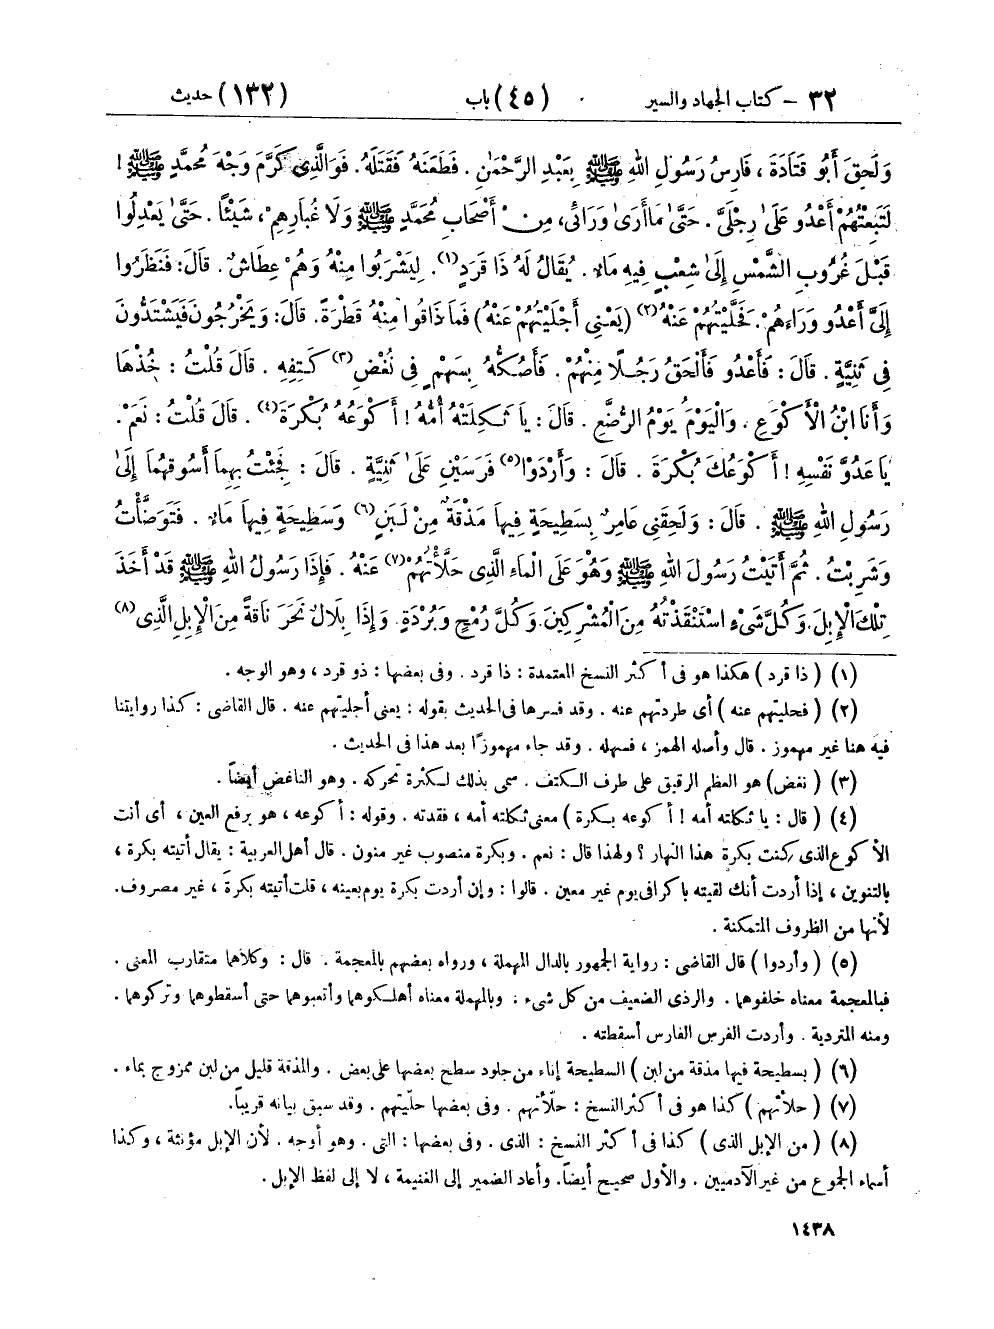 ٣٢ – كتاب الجهاد والسير (٤٥) باب (١٣٢) حديث
وَلَحِقَ أَبُو قَتَادَةَ ، فَارِسُ رَسُولِ اللهِ ﷺ بِعَبْدِ الرَّحْمَٰنِ . فَطَعَنَهُ فَقَتَلَهُ . فَوَالَّذِى كَرَّمَ وَجْهَ مُحَمَّدٍ ﷺ !
لَتَبِعْتُهُمْ أَعْدُو عَلَىٰ رِجْلَىَّ . حَتَّىٰ مَا أَرَىٰ وَرَائِى، مِنْ أَصْحَابِ مُحَمَّدٍ ﷺ وَلَا غُبَارِهِمْ، شَيْئًا . حَتَّىٰ يَعْدِلُوا
قَبْلَ غُرُوبِ الشَّمْسِ إِلَىٰ شِعْبٍ فِيهِ مَاءٌ . يُقَالُ لَهُ ذَا قَرَدٍ(١). لِيَشْرَبُوا مِنْهُ وَهُمْ عِطَاشٌ . قَالَ: فَنَظَرُوا
إِلَىَّ أَعْدُو وَرَاءَهُمْ. فَحَلَّيْتُهُمْ عَنْهُ(٢) (يَعْنِى أَجْلَيْتُهُمْ عَنْهُ) فَمَا ذَاقُوا مِنْهُ قَطْرَةً. قَالَ: وَيَخْرُجُونَ فَيَشْتَدُّونَ
فِى ثَنِيَّةٍ . قَالَ : فَأَعْدُو فَأَلْحَقُ رَجُلًا مِنْهُمْ . فَأَصُكُّهُ بِسَهْمٍ فِى نُغْضِ(٣) كَتِفِهِ . قَالَ قُلْتُ : خُذْهَا
وَأَنَا ابْنُ الْأَكْوَعِ . وَالْيَوْمُ يَوْمُ الرُّضَّعِ . قَالَ : يَا ثَكِلَتْهُ أُمُّهُ ! أَكْوَعُهُ بُكْرَةَ(٤) . قَالَ قُلْتُ : نَعَمْ .
يَا عَدُوَّ نَفْسِهِ ! أَكْوَعُكَ بُكْرَةَ . قَالَ : وَأَرْدَوْا(٥) فَرَسَيْنِ عَلَىٰ ثَنِيَّةٍ . قَالَ : فَجِئْتُ بِهِمَا أَسُوقُهُمَا إِلَىٰ
رَسُولِ اللهِ ﷺ . قَالَ : وَلَحِقَنِى عَامِرٌ بِسَطِيحَةٍ فِيهَا مَذْقَةٌ مِنْ لَبَنٍ(٦) وَسَطِيحَةٍ فِيهَا مَاءٌ . فَتَوَضَّأْتُ
وَشَرِبْتُ . ثُمَّ أَتَيْتُ رَسُولَ اللهِ ﷺ وَهُوَ عَلَى الْمَاءِ الَّذِى حَلَّأْتُهُمْ(٧) عَنْهُ . فَإِذَا رَسُولُ اللهِ ﷺ قَدْ أَخَذَ
تِلْكَ الْإِبِلَ. وَكُلَّ شَىْءٍ اسْتَنْقَذْتُهُ مِنَ الْمُشْرِكِينَ. وَكُلَّ رُمْحٍ وَبُرْدَةٍ. وَإِذَا بِلَالٌ نَحَرَ نَاقَةً مِنَ الْإِبِلِ الَّذِى(٨)
(١) (ذا قرد) هكذا هو فى أكثر النسخ المعتمدة : ذا قرد . وفى بعضها : ذو قرد ، وهو الوجه .
(٢) (فحليتهم عنه) أى طردتهم عنه . وقد فسرها فى الحديث بقوله : يعنى أجليتهم عنه . قال القاضى : كذا روايتنا
فيه هنا غير مهموز . قال وأصله الهمز ، فسهله . وقد جاء مهموزًا بعد هذا فى الحديث .
(٣) (نغض) هو العظم الرقيق على طرف الكتف . سمى بذلك لكثرة تحركه . وهو الناغض أيضاً .
(٤) (قال : يا ثكلته أمه ! أكوعه بكرة) معنى ثكلته أمه ، فقدته . وقوله : أكوعه ، هو برفع العين ، أى أنت
الأكوع الذى كنت بكرة هذا النهار ؟ ولهذا قال : نعم . وبكرة منصوب غير منون . قال أهل العربية : يقال أتيته بكرة ،
بالتنوين ، إذا أردت أنك لقيته باكرا فى يوم غير معين . قالوا : وإن أردت بكرة يوم بعينه ، قلت أتيته بكرةَ ، غير مصروف.
لأنها من الظروف المتمكنة .
(٥) (وأردوا) قال القاضى : رواية الجمهور بالدال المهملة ، ورواه بعضهم بالمعجمة . قال : وكلاهما متقارب المعنى .
فبالمعجمة معناه خلفوهما . والرذى الضعيف من كل شىء . وبالمهملة معناه أهلكوهما وأتعبوهما حتى أسقطوهما وتركوهما .
ومنه المتردية . وأردت الفرس الفارس أسقطته .
(٦) (بسطيحة فيها مذقة من لبن) السطيحة إناء من جلود سطح بعضها على بعض . والمذقة قليل من لبن ممزوج بماء .
(٧) (حلأتهم) كذا هو فى أكثر النسخ : حلّأتهم . وفى بعضها حلّيتهم . وقد سبق بيانه قريباً.
(٨) (من الإبل الذى) كذا فى أكثر النسخ : الذى . وفى بعضها : التى . وهو أوجه . لأن الإبل مؤنثة ، وكذا
أسماء الجموع من غير الآدميين . والأول صحيح أيضاً. وأعاد الضمير إلى الغنيمة ، لا إلى لفظ الإبل .
١٤٣٨